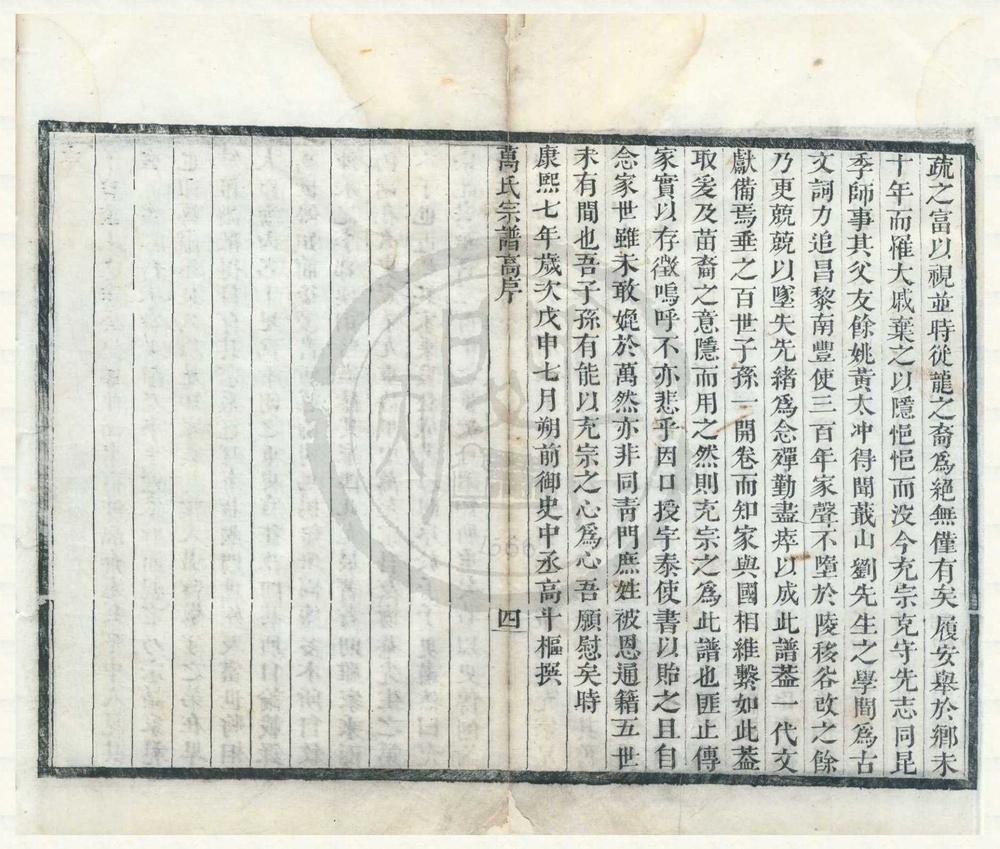 疏之富以視並時從龍之裔爲絕無僅有矣履安舉於鄉未
十年而罹大戚棄之以隱悒悒而没今充宗克守先志同昆
季師事其父友餘姚黃太冲得聞蕺山劉先生之學間爲古
文詞力追昌黎南豐使三百年家聲不墮於陵移谷改之餘
乃更兢兢以墜失先緒爲念殫勤盡瘁以成此譜葢一代文
獻備焉垂之百世子孫一開卷而知家與國相維繫如此葢
取爰及苗裔之意隱而用之然則充宗之爲此譜也匪止傳
家實以存徵嗚呼不亦悲乎因口授宇泰使書以貽之且自
念家世雖未敢娩於萬然亦非同青門庶姓被恩通籍五世
未有間也吾子孫有能以充宗之心爲心吾願慰矣時
康熙七年歲次戊申七月朔前御史中丞高斗樞撰
萬氏宗譜高序
四
1666